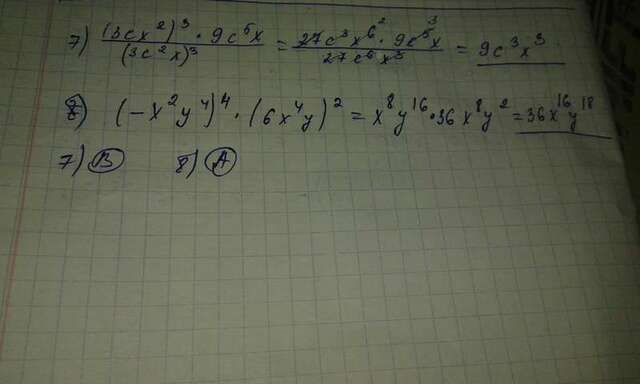 7) (3cx²)³ · 9c⁵x / (3c²x)³ = 27c³x⁶ ² · 9c⁵ ³x / 27c⁶x³ = 9c³x³
8) (-x²y⁴)⁴ · (6x⁴y)² = x⁸y¹⁶ · 36x⁸y² = 36x¹⁶y¹⁸
7) B 8) A